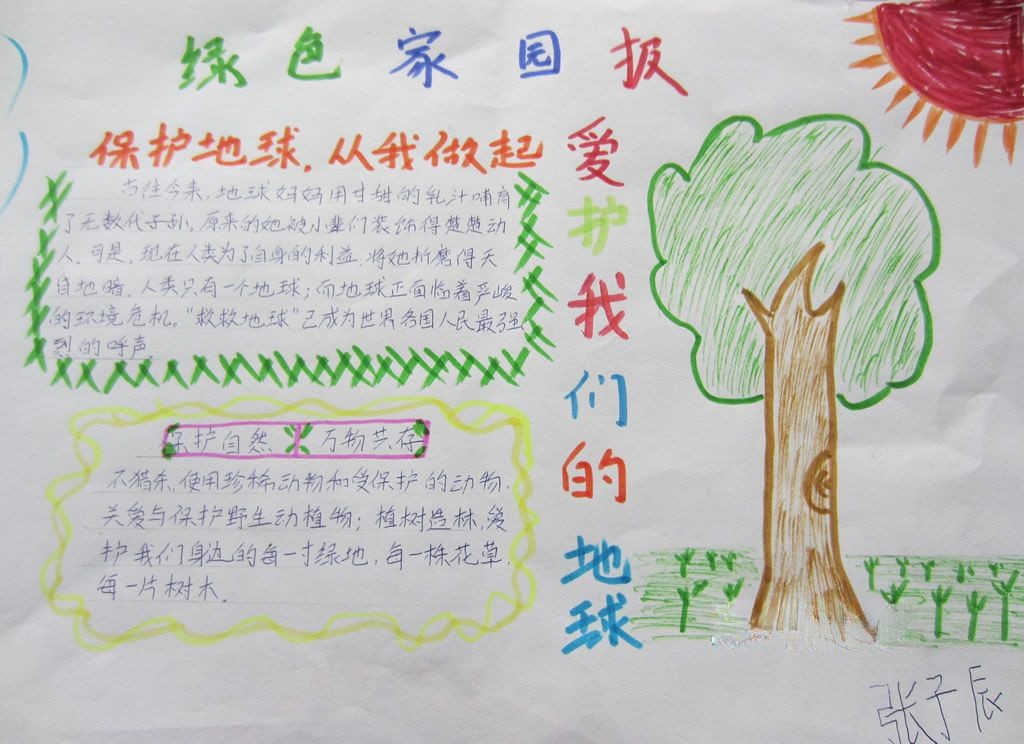 绿色家园报
保护地球,从我做起
古往今来,地球妈妈用甘甜的乳汁哺育
了无数代子孙。原来的她被小辈们装饰得楚楚动
人。可是,现在人类为了自身的利益,将她折磨得天
昏地暗。人类只有一个地球;而地球正面临着严峻
的环境危机。“救救地球”已成为世界各国人民最强
烈的呼声。
保护自然 万物共存
不猎杀、使用珍稀动物和受保护的动物,
关爱与保护野生动植物;植树造林,爱
护我们身边的每一寸绿地,每一株花草,
每一片树木。
爱护我们的地球
张子辰